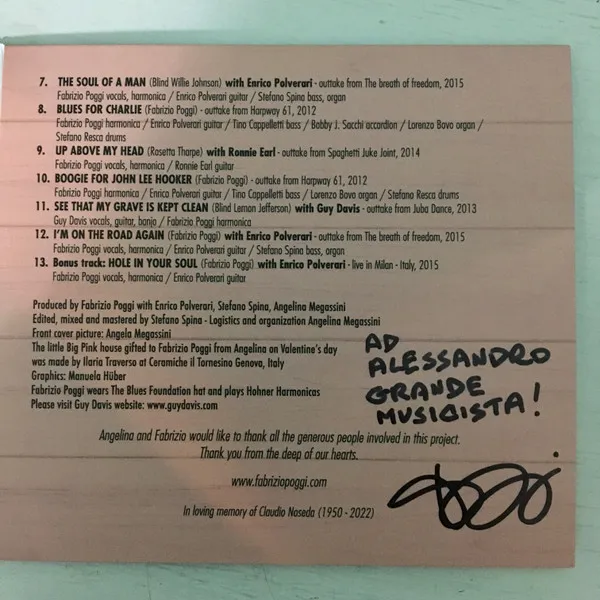 7. THE SOUL OF A MAN (Blind Willie Johnson) with Enrico Polverari - outtake from The breath of freedom, 2015
Fabrizio Poggi vocals, harmonica / Enrico Polverari guitar / Stefano Spina bass, organ
8. BLUES FOR CHARLIE (Fabrizio Poggi) - outtake from Harpway 61, 2012
Fabrizio Poggi harmonica / Enrico Polverari guitar / Tino Cappelletti bass / Bobby J. Sacchi accordion / Lorenzo Bovo organ /
Stefano Resca drums
9. UP ABOVE MY HEAD (Rosetta Tharpe) with Ronnie Earl - outtake from Spaghetti Juke Joint, 2014
Fabrizio Poggi vocals, harmonica / Ronnie Earl guitar
10. BOOGIE FOR JOHN LEE HOOKER (Fabrizio Poggi) - outtake from Harpway 61, 2012
Fabrizio Poggi harmonica / Enrico Polverari guitar / Tino Cappelletti bass / Lorenzo Bovo organ / Stefano Resca drums
11. SEE THAT MY GRAVE IS KEPT CLEAN (Blind Lemon Jefferson) with Guy Davis - outtake from Juba Dance, 2013
Guy Davis vocals, guitar, banjo / Fabrizio Poggi harmonica
12. I'M ON THE ROAD AGAIN (Fabrizio Poggi) with Enrico Polverari - outtake from The breath of freedom, 2015
Fabrizio Poggi vocals, harmonica / Enrico Polverari guitar / Stefano Spina bass, organ
13. Bonus track: HOLE IN YOUR SOUL (Fabrizio Poggi) with Enrico Polverari - live in Milan - Italy, 2015
Fabrizio Poggi vocals, harmonica / Enrico Polverari guitar
Produced by Fabrizio Poggi with Enrico Polverari, Stefano Spina, Angelina Megassini
Edited, mixed and mastered by Stefano Spina - Logistics and organization Angelina Megassini
Front cover picture: Angela Megassini
The little Big Pink house gifted to Fabrizio Poggi from Angelina on Valentine's day
was made by Ilaria Traverso at Ceramiche il Tornesino Genova, Italy
Graphics: Manuela Hüber
Fabrizio Poggi wears The Blues Foundation hat and plays Hohner Harmonicas
Please visit Guy Davis website: www.guydavis.com
AD
ALESSANDRO
GRANDE
MUSICISTA!
Angelina and Fabrizio would like to thank all the generous people involved in this project.
Thank you from the deep of our hearts.
www.fabriziopoggi.com
In loving memory of Claudio Noseda (1950 - 2022)